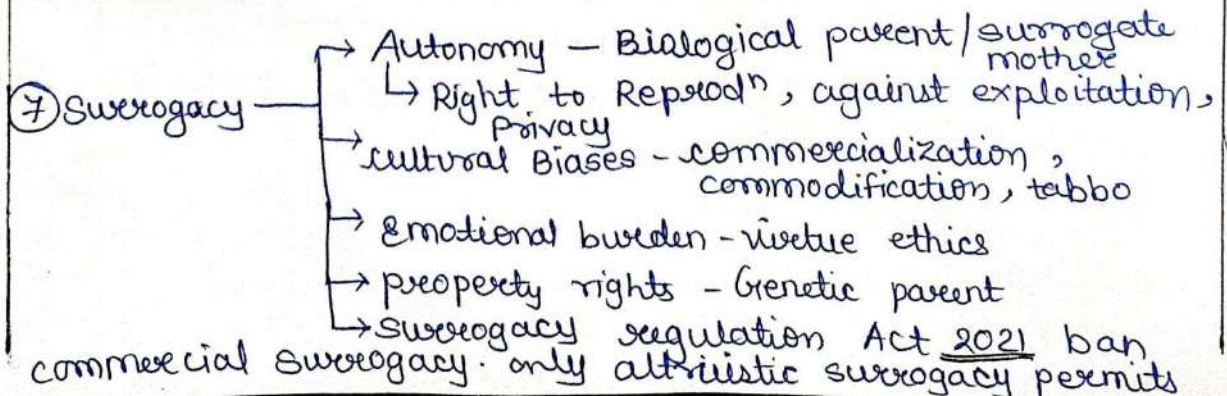 → Autonomy — Bialogical parent / surrogate mother
⑦ Surrogacy → Right to Reprodⁿ, against exploitation, privacy
→ cultural Biases - commercialization, commodification, tabbo
→ Emotional burden - virtue ethics
→ property rights - Genetic parent
→ surrogacy regulation Act 2021 ban
commercial surrogacy. only altriustic surrogacy permits